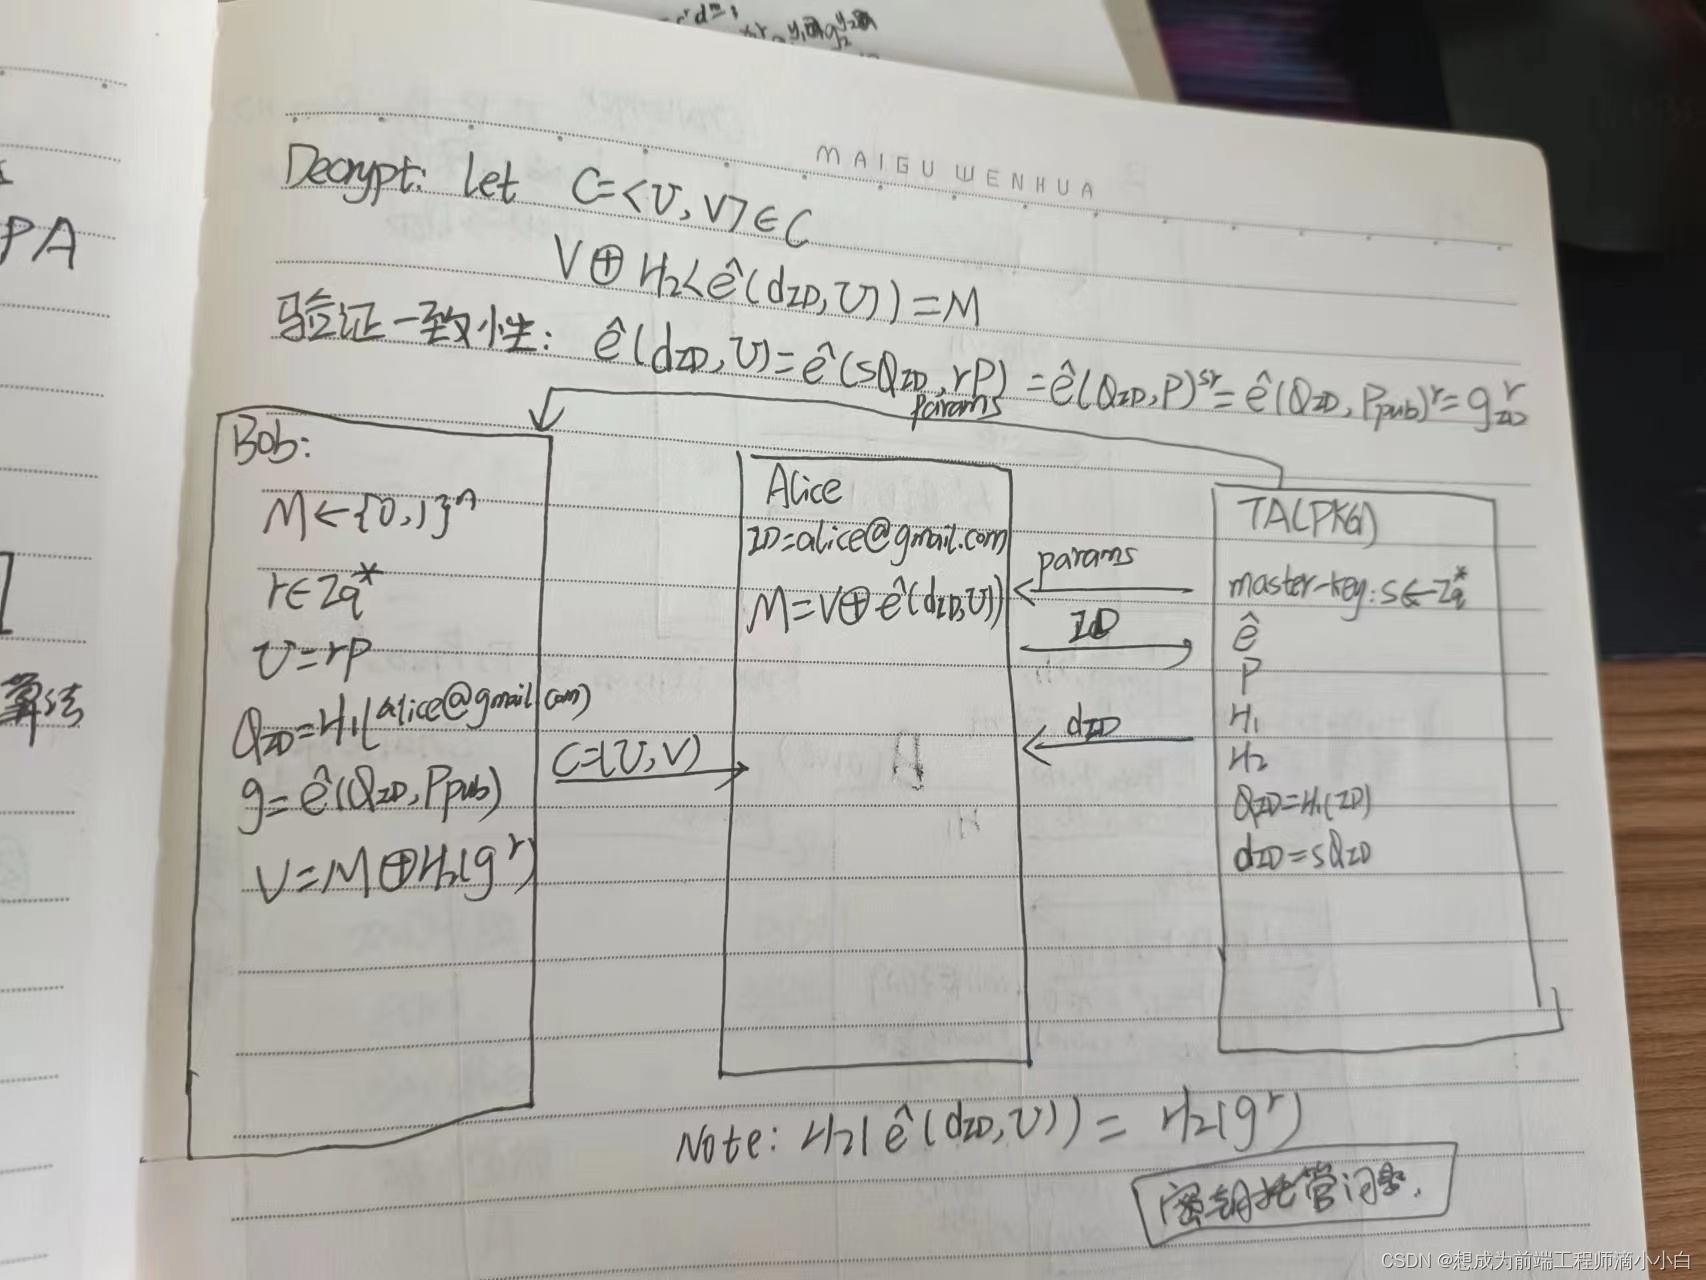 MAIGU WENHUA
Decrypt: Let C=<U,V>∈C
V⊕H₂<ê(d_ID,U))=M
验证一致性: ê(d_ID,U)=ê(sQ_ID,rP)=ê(Q_ID,P)^sr=ê(Q_ID,Ppub)^r=g_ID^r
params
Bob:
M←{0,1}^n
r∈Zq*
U=rP
Q_ID=H₁(alice@gmail.com)
g=ê(Q_ID,Ppub)
V=M⊕H₂(g^r)
C=(U,V)
Alice
ID=alice@gmail.com
M=V⊕ê(d_ID,U))
params
ID
d_ID
TA(PKG)
master-key:s←Zq*
ê
P
H₁
H₂
Q_ID=H₁(ID)
d_ID=sQ_ID
Note: H₂(ê(d_ID,U))=H₂(g^r)
密钥托管问题.
PA
算法
CSDN @想成为前端工程师滴小小白